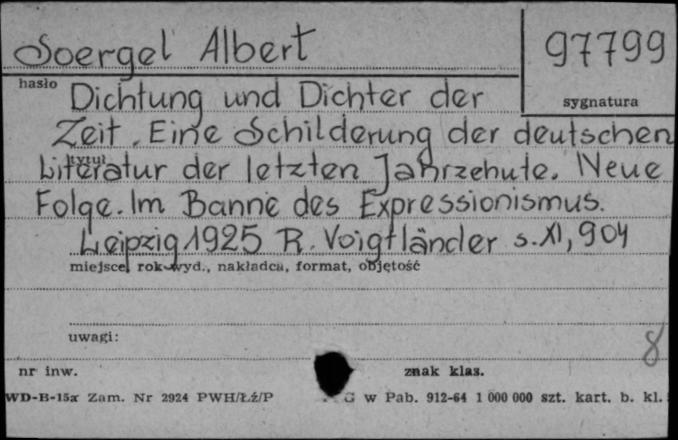 Soergel Albert
97799
hasło
sygnatura
Dichtung und Dichter der
Zeit. Eine Schilderung der deutschen
tytuł
Literatur der letzten Jahrzehute. Neue
Folge. Im Banne des Expressionismus.
Leipzig 1925 R. Voigtländer s. XI, 904
miejsce, rok wyd., nakładca, format, objętość
uwagi:
8
nr inw.
znak klas.
WD-B-15a Zam. Nr 2924 PWH/Łź/P
G w Pab. 912-64 1 000 000 szt. kart. b. kl.